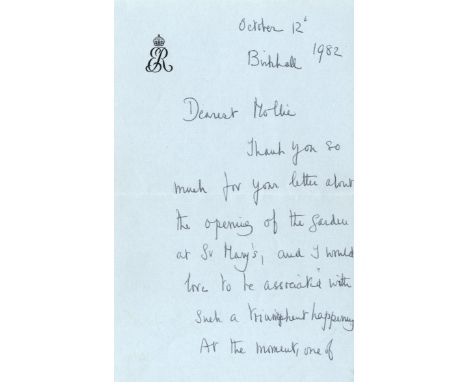 October 12th
Birkhall 1982
ER
Dearest Mollie
Thank you so
much for your letter about
the opening of the Garden
at St Mary's, and I would
love to be associated with
such a triumphent happening
At the moment, one of